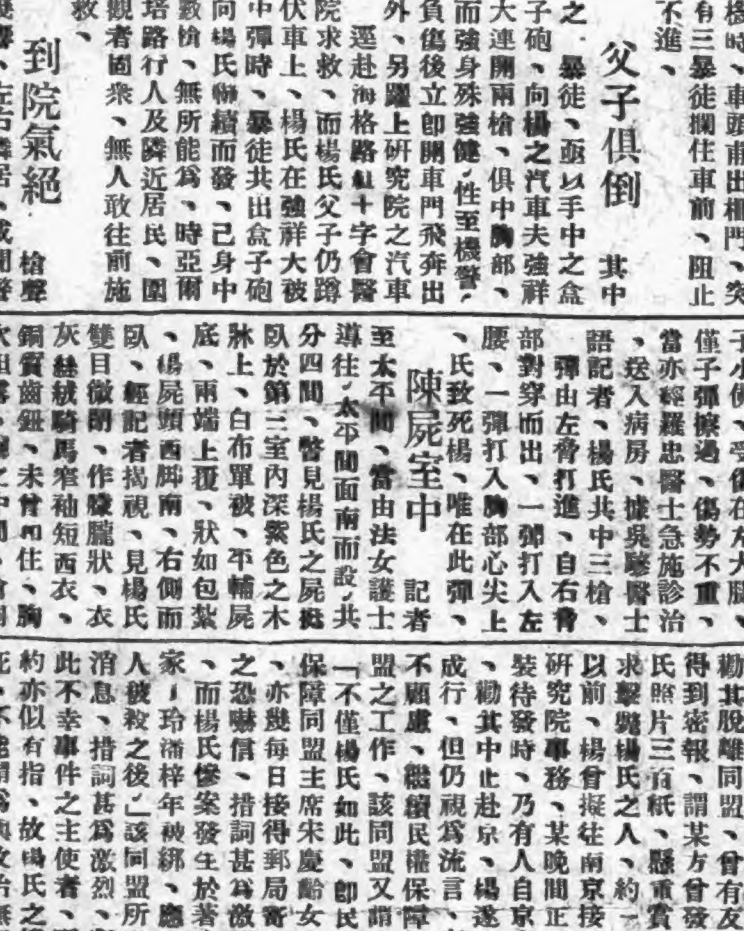 樓時、車頭甫出柵門、突
有三暴徒攔住車前、阻止
不進、
父子俱倒 其中
之 暴徒、亟以手中之盒
子砲、向楊之汽車夫強祥
大連開兩槍、俱中胸部、
而強身殊強健、性至機警、
負傷後立即開車門飛奔出
外、另躍上研究院之汽車
逕赴海格路紅十字會醫
院求救、而楊氏父子仍蹲
伏車上、楊氏在強祥大被
中彈時、暴徒共出盒子砲
向楊氏獅續而發、己身中
數槍、無所能爲、時亞爾
培路行人及隣近居民、圍
觀者固衆、無人敢往前施
救、
到院氣絕 槍聲
左右隣居、或聞警
子小佛、受傷在左大腿、
僅子彈擦過、傷勢不重、
當亦經羅忠醫士急施診治
、送入病房、據吳醫士
語記者、楊氏共中三槍、
彈由左脅打進、自右脅
部對穿而出、一彈打入左
腰、一彈打入胸部心尖上
、氏致死楊、唯在此彈、
陳屍室中 記者
至太平間、當由法女護士
導往、太平間面南而設、共
分四間、瞥見楊氏之屍挺
臥於第三室內深紫色之木
牀上、白布單被、平輔屍
底、兩端上覆、狀如包紮
、楊屍頭西脚南、右側而
臥、經記者揭視、見楊氏
雙目微閉、作朦朧狀、衣
灰絲絨騎馬窄袖短西衣、
銅質齒鈕、未曾扣住、胸
勸其脫離同盟、曾有友
得到密報、謂某方曾發
氏照片三百紙、懸重賞
求擊斃楊氏之人、約一
以前、楊曾擬往南京接
研究院事務、某晚間正
裝待發時、乃有人自京
、勸其中止赴京、楊遂
成行、但仍視爲流言、
不顧慮、繼續民權保障
盟之工作、該同盟又謂
「不僅楊氏如此、卽民
保障同盟主席宋慶齡女
、亦幾每日接得郵局寄
之恐嚇信、措詞甚爲激
、而楊氏慘案發生於著
家｜玲潘梓年被綁、應
人被殺之後、」該同盟所
消息、措詞甚爲激烈、
此不幸事件之主使者、
約亦似有指、故楊氏之